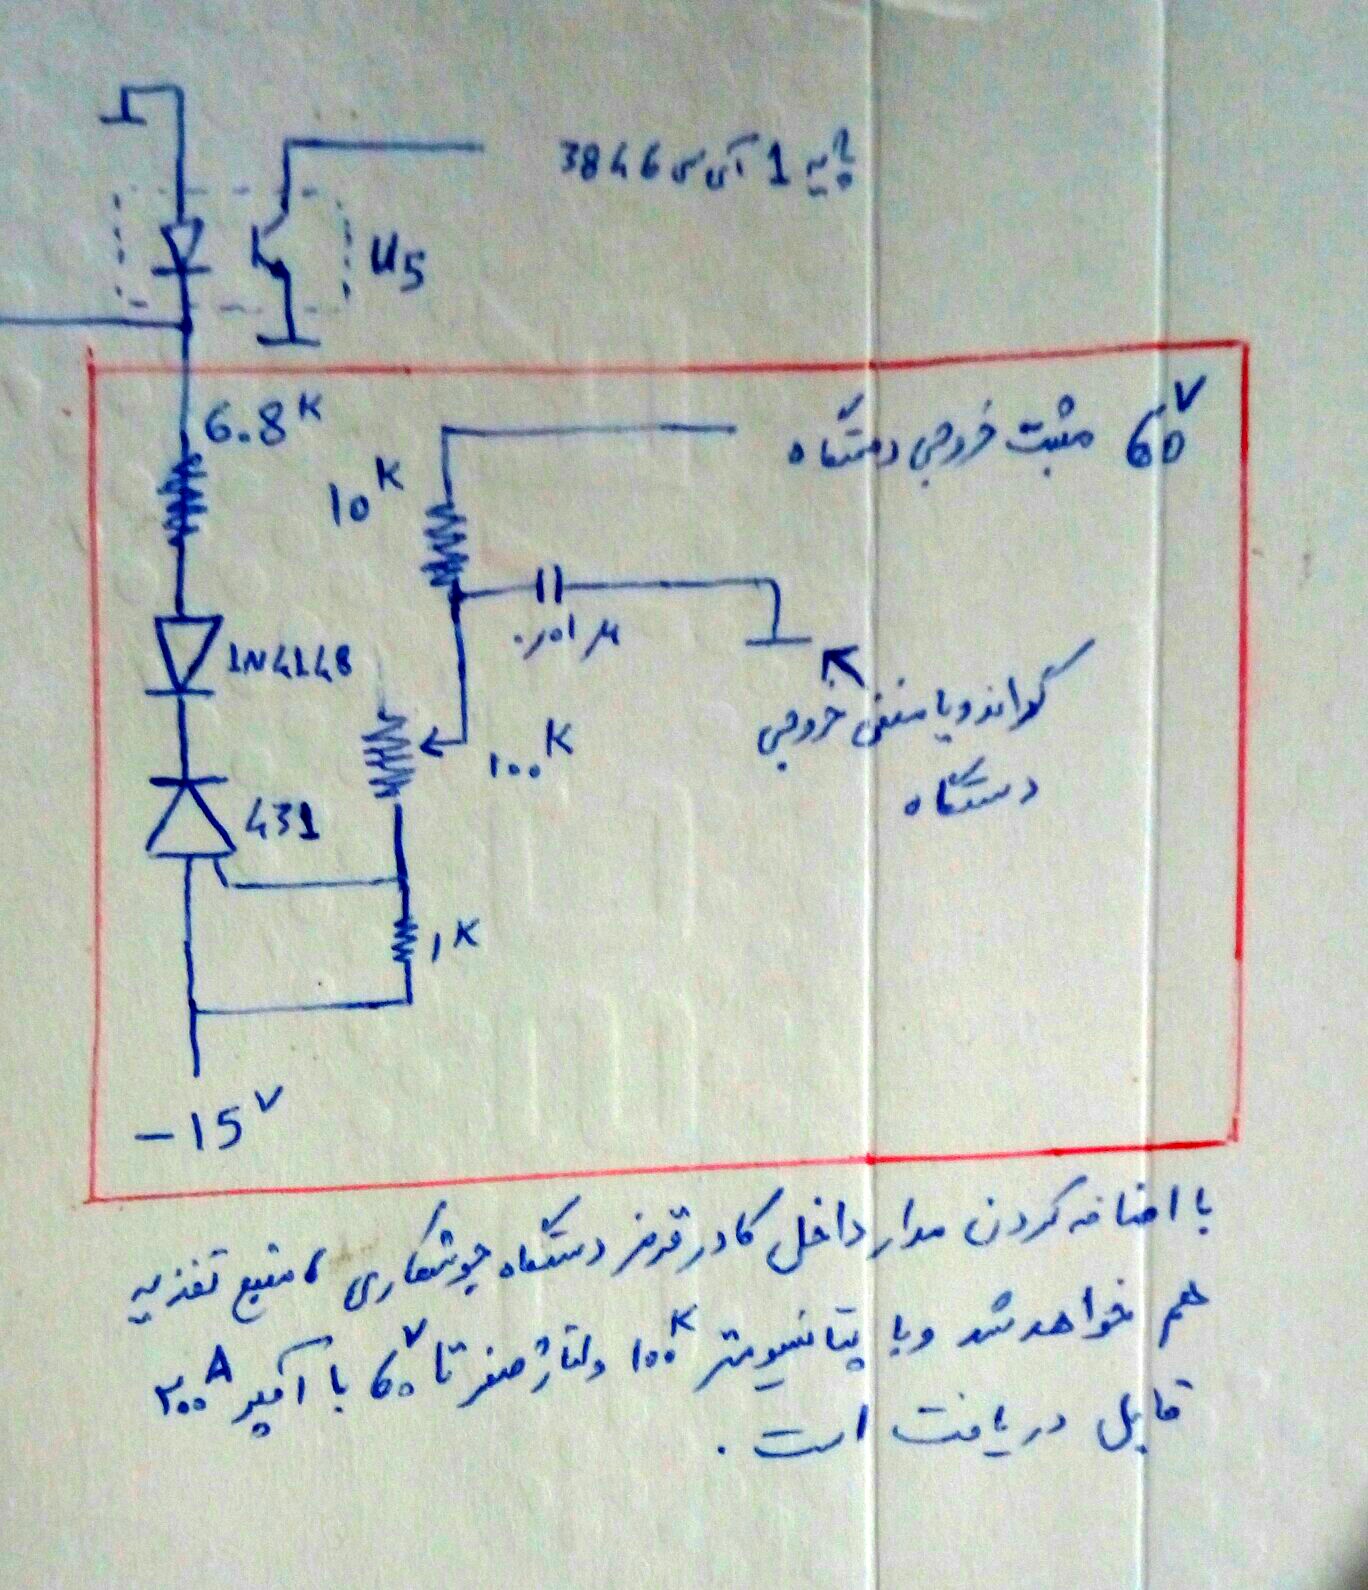 پایه 1 آی سی 3846
U5
6.8K
60V مثبت خروجی دستگاه
10K
1N4148
۰/۰۱ μ
۱۰۰K
گراند و یا منفی خروجی
دستگاه
431
۱K
-15V
با اضافه کردن مدار داخل کادر قرمز دستگاه جوشکاری، منبع تغذیه
هم خواهد شد و با پتانسیومتر ۱۰۰K ولتاژ صفر تا 60V با آمپر ۲۰۰A
قابل دریافت است.